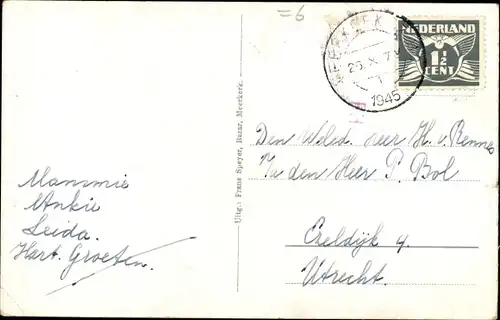 =6
MEERKERK
25.X.7
1945
NEDERLAND
1½
CENT
Den Weled. Heer H. v. Rennes
P/a den Heer P. Bol
Ezeldijk 9.
Utrecht.
Uitg.: Frans Speyer, Bazar, Meerkerk
Mammie
Ankie
Leida.
Hart. Groeten.